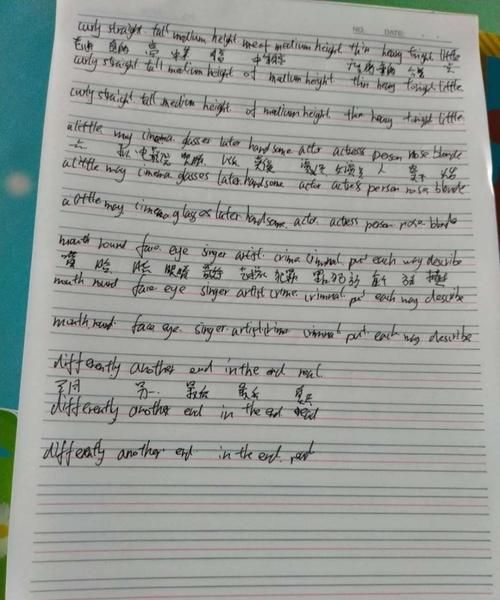 NO. DATE.
curly straight tall medium height of medium height thin heavy tonight little
直的 高 中等 中等身高
curly straight tall medium height of medium height thin heavy tonight little
curly straight tall medium height of medium height thin heavy tonight little
a little may cinema glasses later handsome actor actress person nose blonde
电影院 眼睛 以后 人 鼻子
a little may cinema glasses later handsome actor actress person nose blonde
a little may cinema glasses later handsome actor actress person nose blonde
mouth round face eye singer artist crime criminal put each way describe
嘴 脸 眼睛 歌手 犯罪 罪犯 放
mouth round face eye singer artist crime criminal put each way describe
mouth round face eye singer artist crime criminal put each way describe
differently another end in the end real
不同 另一 最后 最后 真正
differently another end in the end real
differently another end in the end real